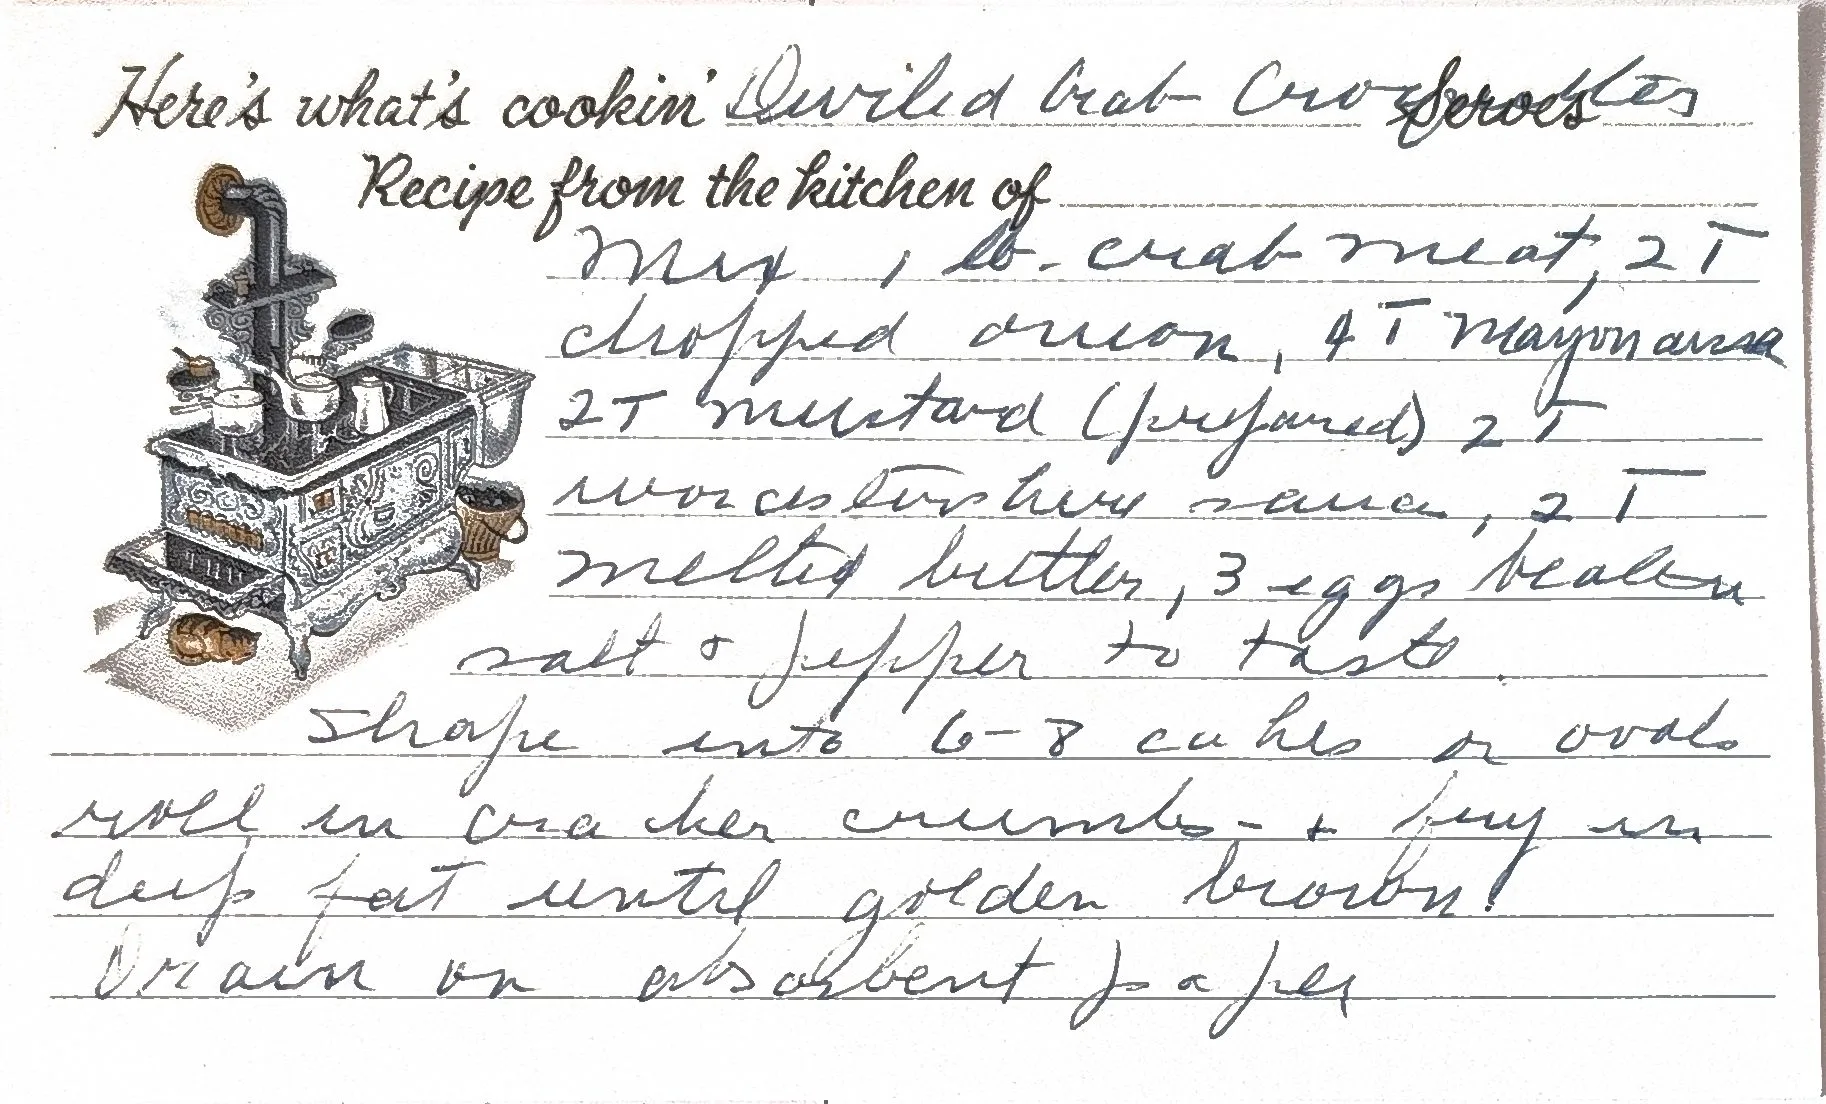 Here's what's cookin' Deviled Crab Croquettes Serves
Recipe from the kitchen of
Mix 1 lb. crab meat, 2 T
chopped onion, 4 T Mayonaise
2 T mustard (prepared) 2 T
worcestershire sauce, 2 T
melted butter, 3 eggs beaten
salt & pepper to taste.
Shape into 6-8 cakes or ovals
roll in cracker crumbs - + fry in
deep fat until golden brown.
Drain on absorbent paper